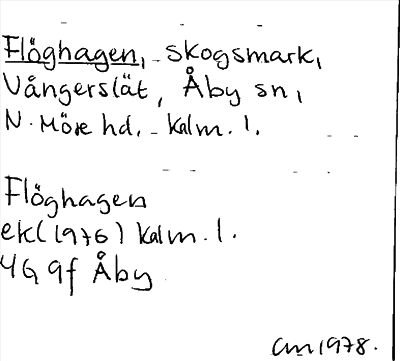 Flöghagen, skogsmark,
Vångerslät, Åby sn,
N. Möre hd, Kalm. l.
Flöghagen
ek (1976) Kalm. l.
4G 9f Åby
1978.